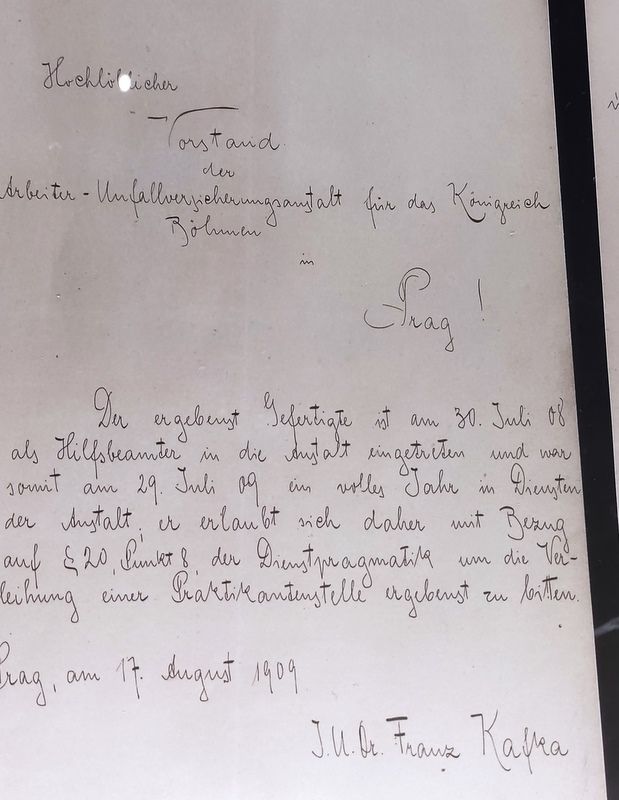 Hochlöblicher
Vorstand
der
Arbeiter-Unfallversicherungsanstalt für das Königreich
Böhmen
in
Prag!
Der ergebenst Gefertigte ist am 30. Juli 08
als Hilfsbeamter in die Anstalt eingetreten und war
somit am 29. Juli 09 ein volles Jahr in Diensten
der Anstalt, er erlaubt sich daher mit Bezug
auf § 20, Punkt 8, der Dienstpragmatik um die Ver-
leihung einer Praktikantenstelle ergebenst zu bitten.
Prag, am 17. August 1909
J.U.Dr. Franz Kafka